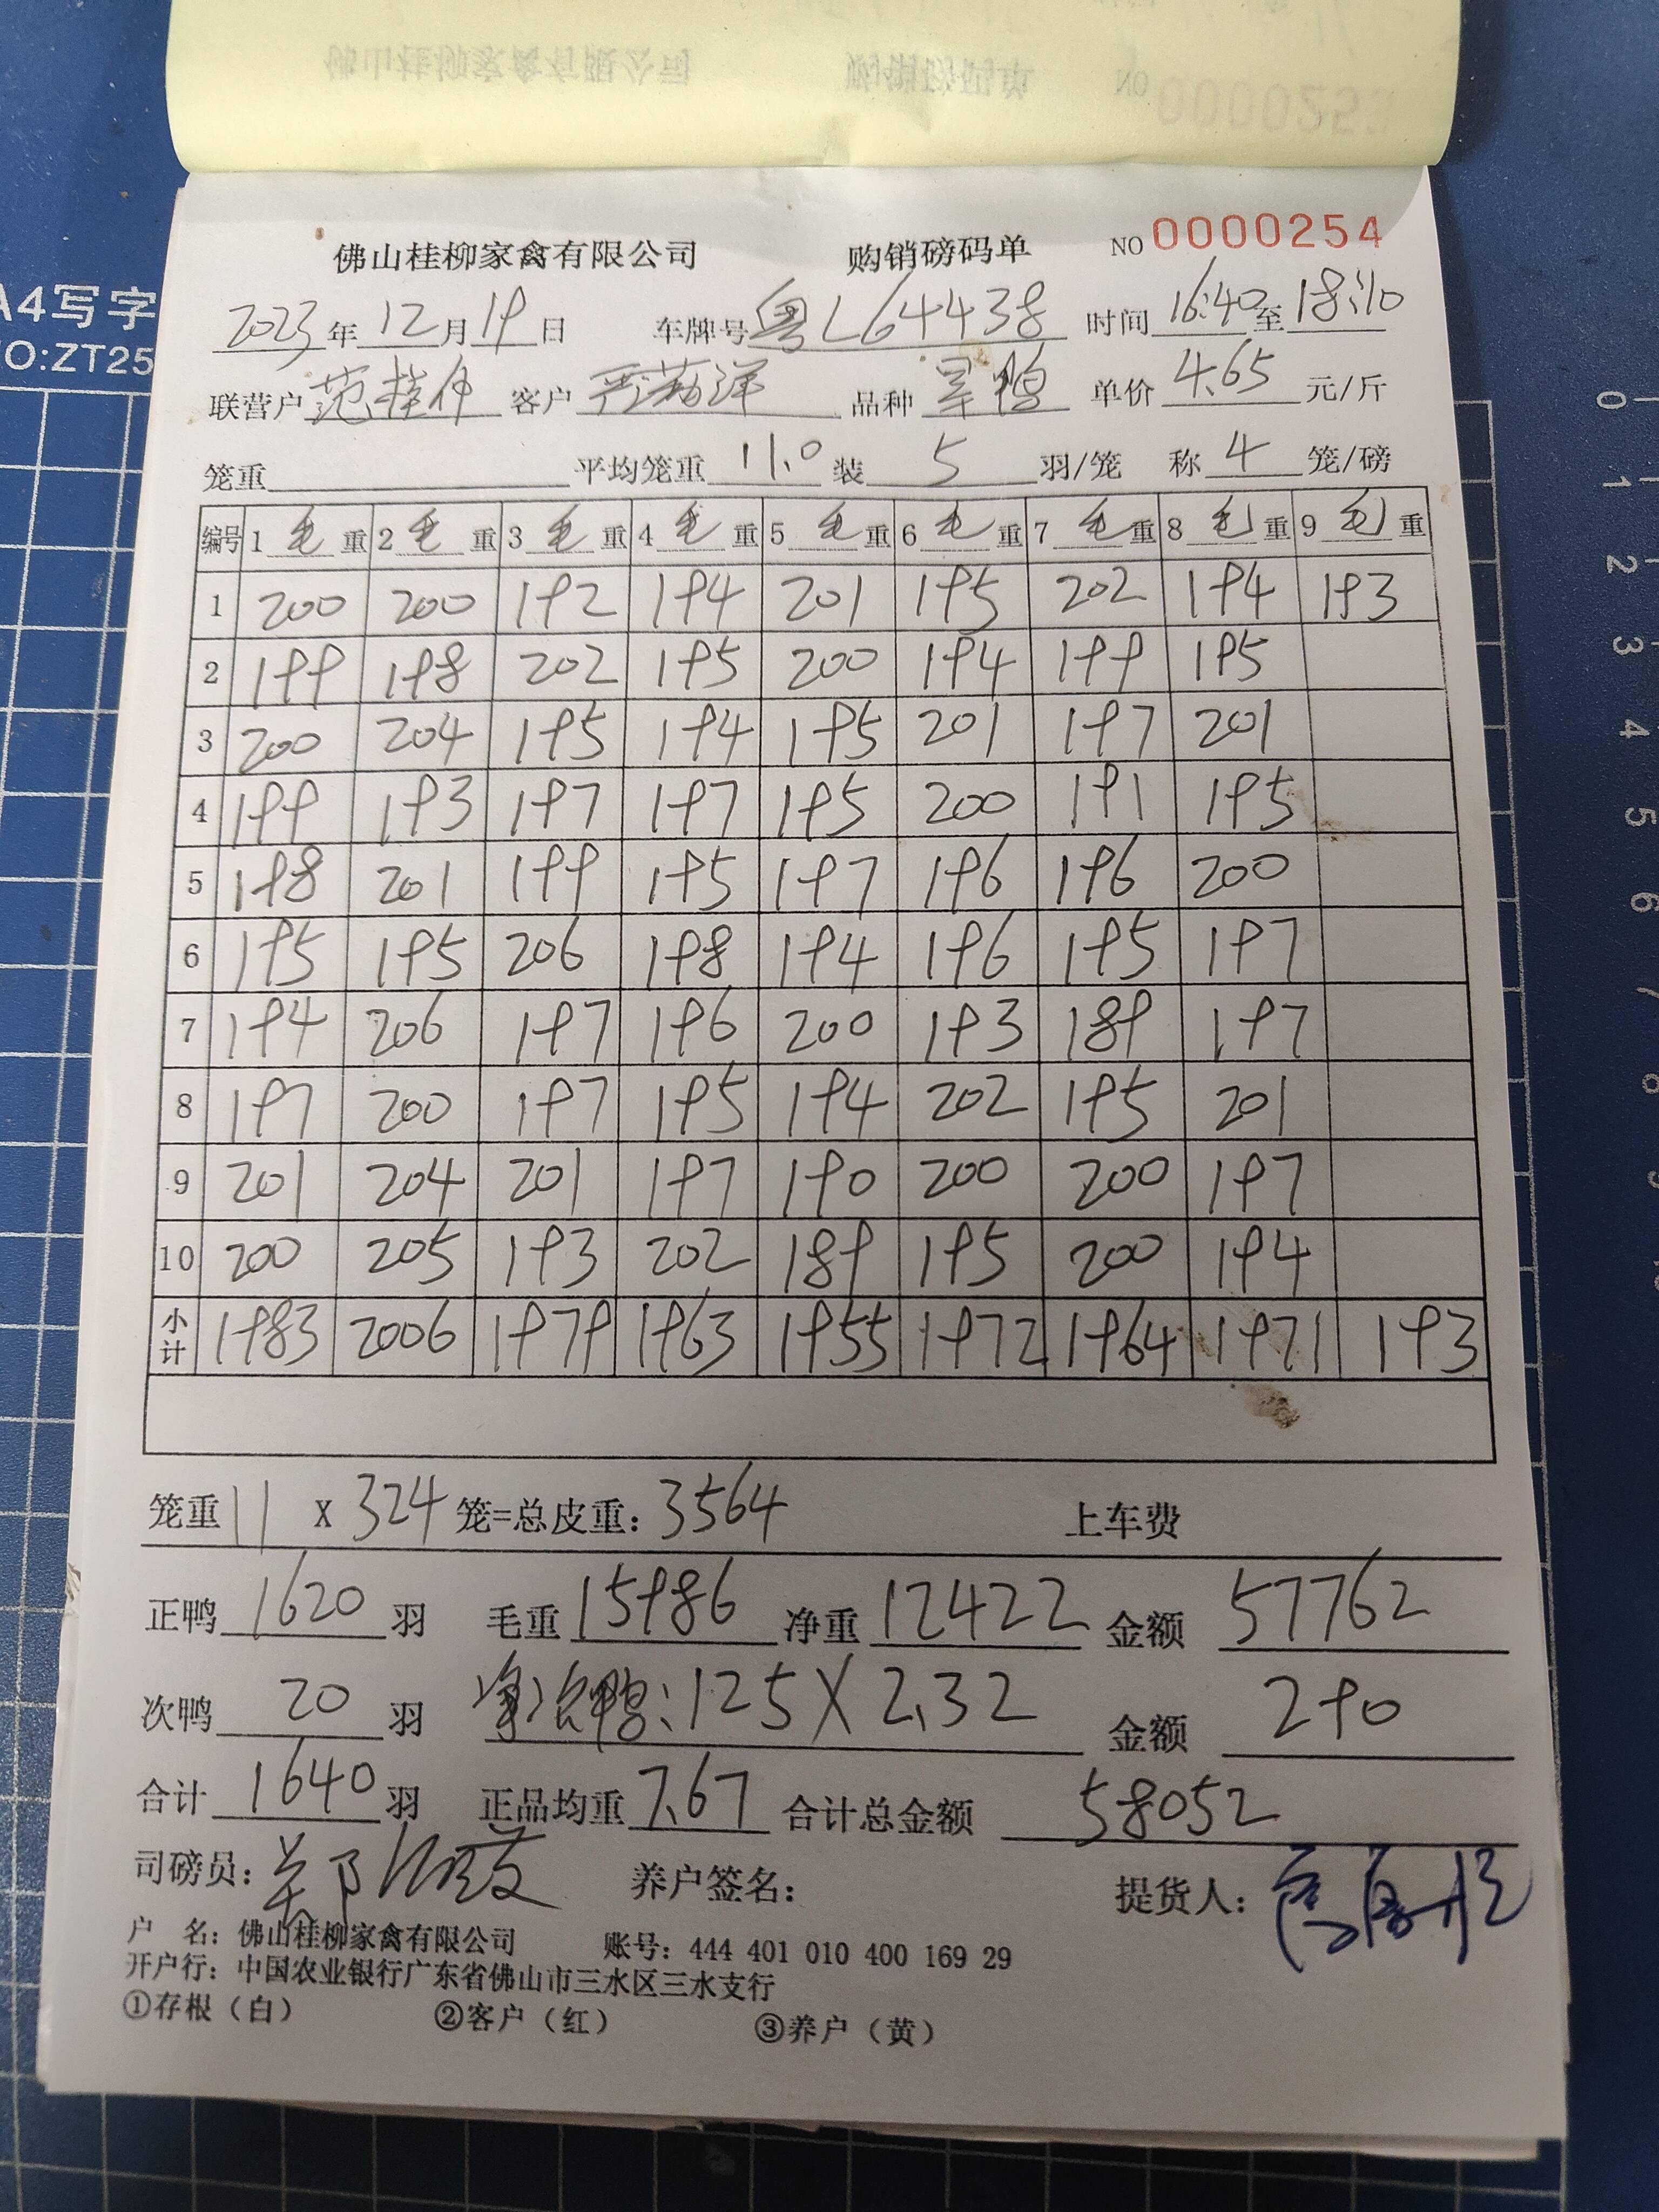 佛山桂柳家禽有限公司 购销磅码单 NO 0000254
2023年12月19日 车牌号粤L64438 时间16:40至18:10
联营户 范 客户 严 洋 品种 鸭 单价4.65元/斤
笼重 平均笼重11.0装5羽/笼 称4笼/磅
编号 1毛重 2毛重 3毛重 4毛重 5毛重 6毛重 7毛重 8毛重 9毛重
1 200 200 192 194 201 195 202 194 193
2 199 198 202 195 200 194 199 195
3 200 204 195 194 195 201 197 201
4 199 193 197 197 195 200 191 195
5 198 201 199 195 197 196 196 200
6 195 195 206 198 194 196 195 197
7 194 206 197 196 200 193 189 197
8 197 200 197 195 194 202 195 201
9 201 204 201 197 190 200 200 197
10 200 205 193 202 189 195 200 194
小计 1983 2006 1979 1963 1955 1972 1964 1971 193
笼重11 X 324笼=总皮重:3564 上车费
正鸭1620羽 毛重15986 净重12422 金额57762
次鸭20羽 净次鸭:125X2.32 金额290
合计1640羽 正品均重7.67 合计总金额58052
司磅员:郑 养户签名: 提货人:
户 名:佛山桂柳家禽有限公司 账号:444 401 010 400 169 29
开户行:中国农业银行广东省佛山市三水区三水支行
①存根（白） ②客户（红） ③养户（黄）